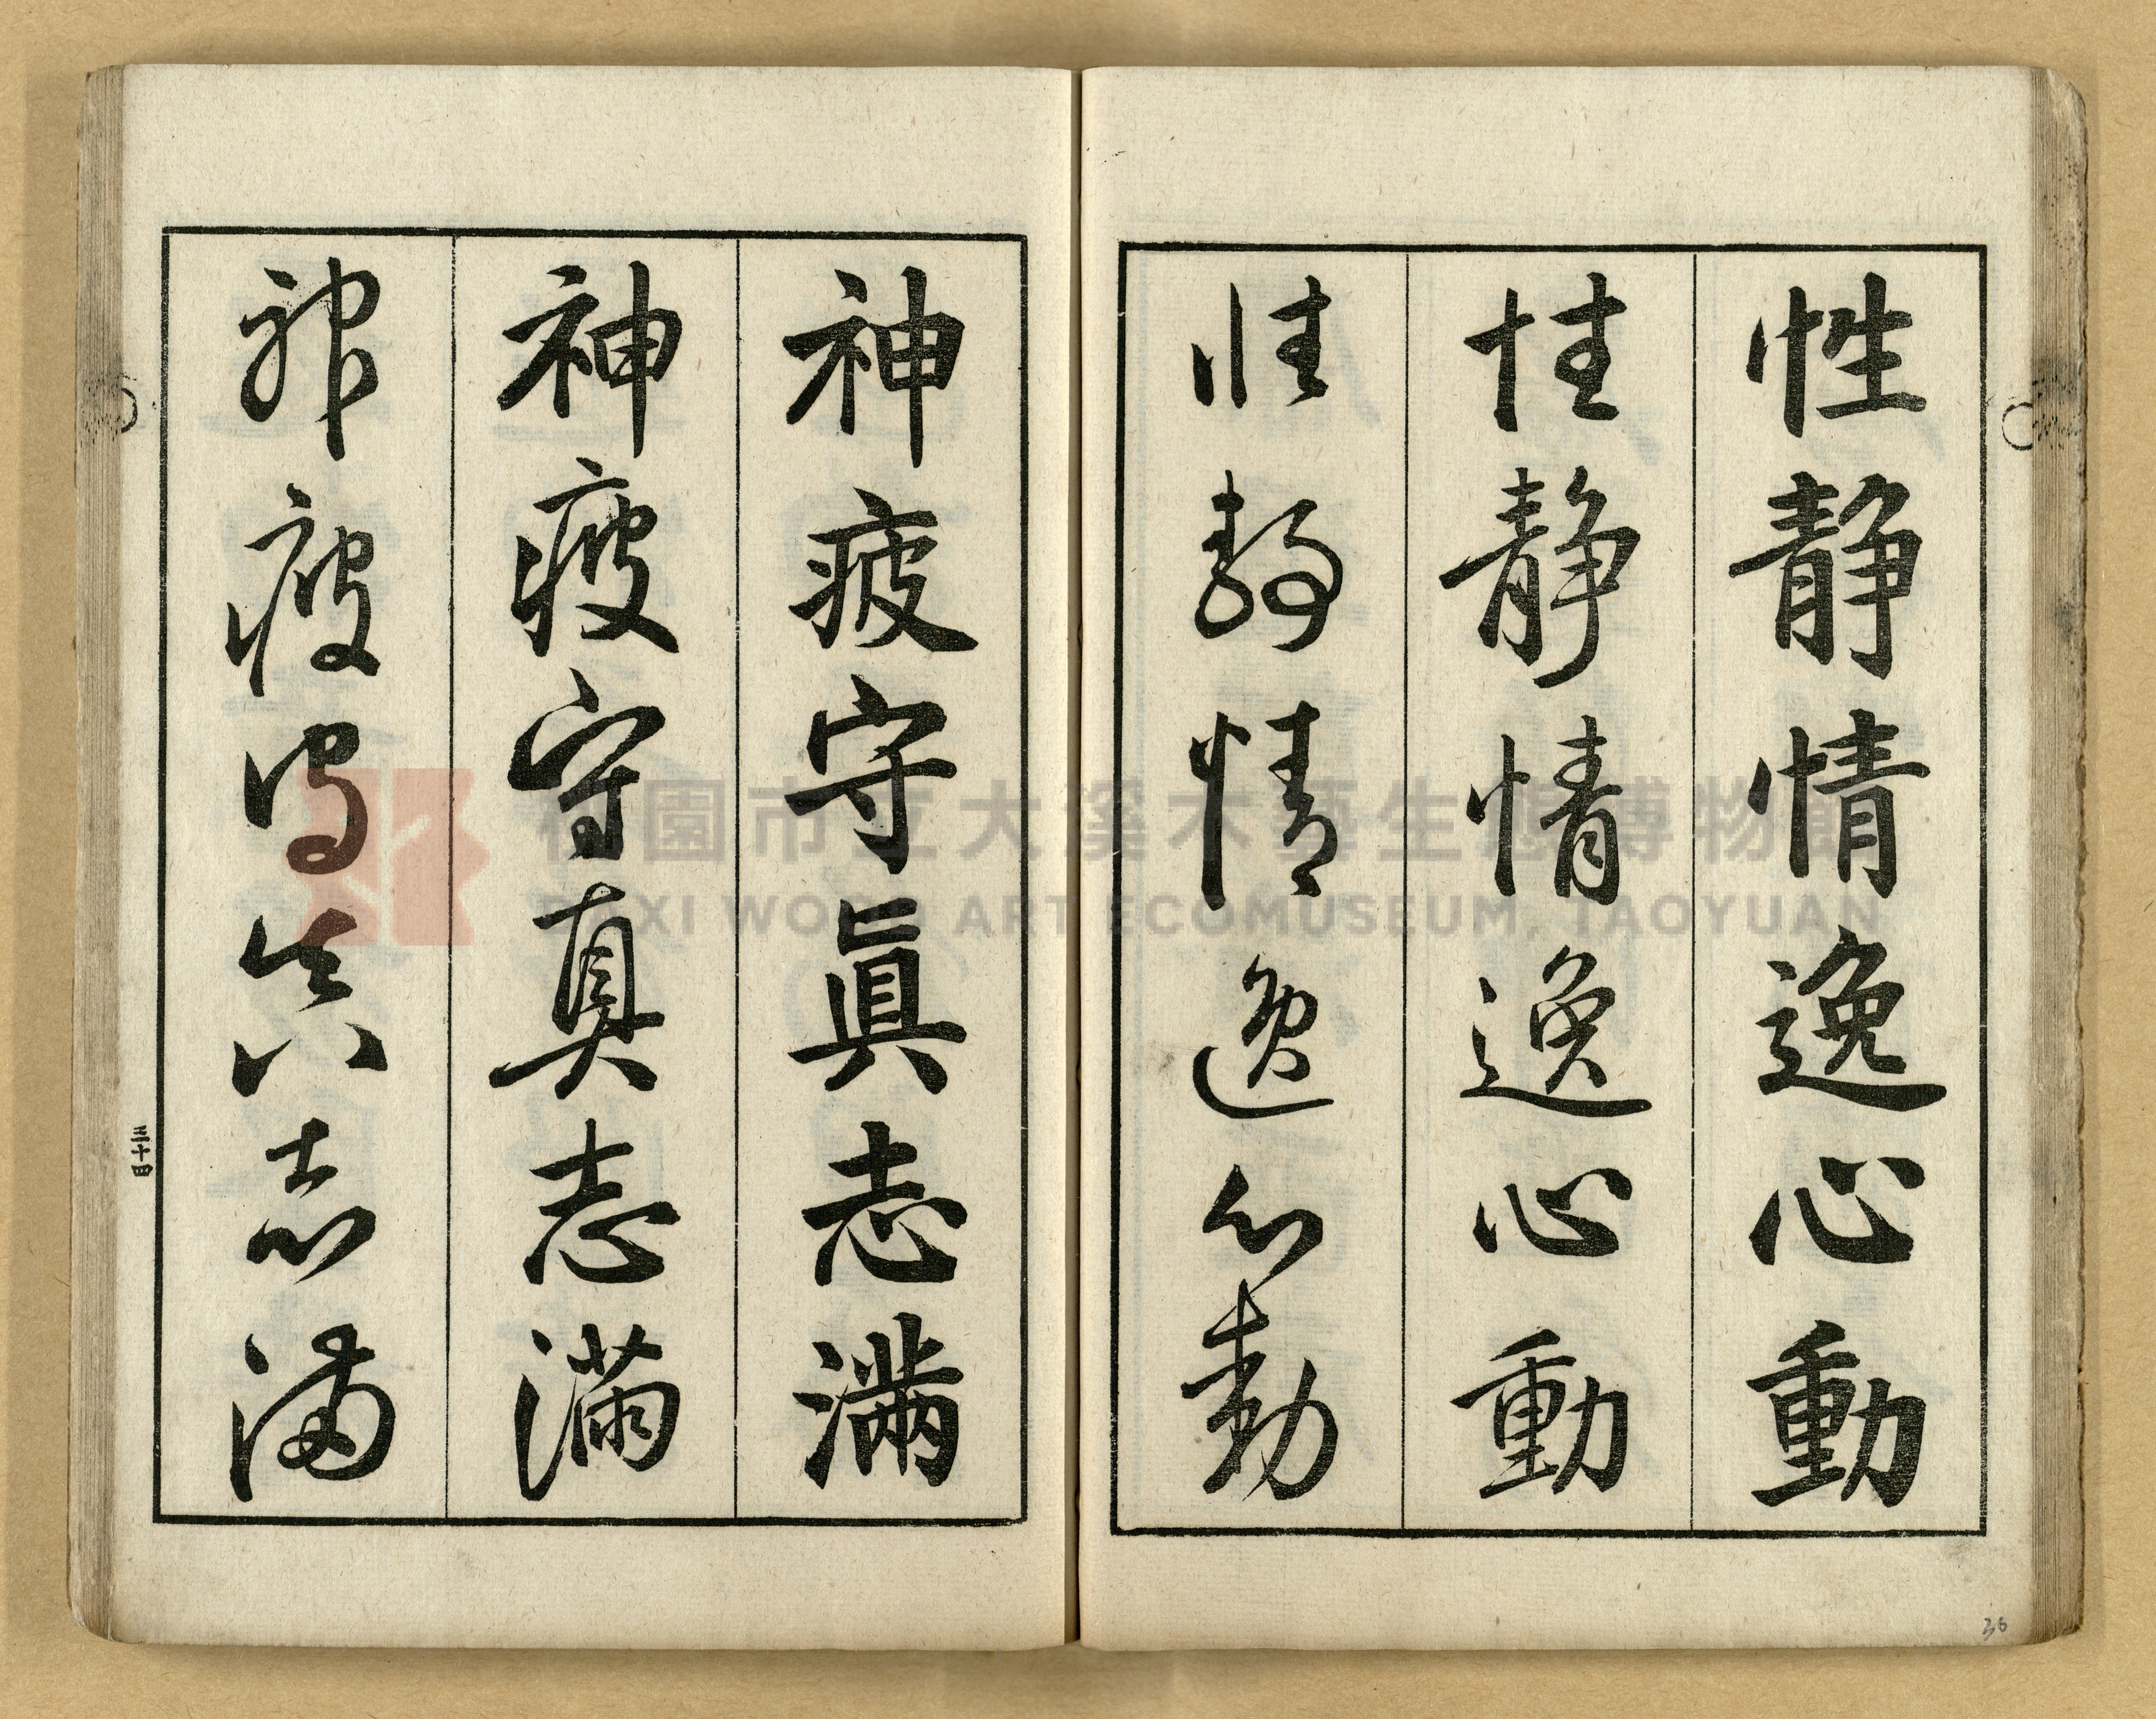 性静情逸心動
性静情逸心動
性静情逸心動
神疲守眞志滿
神疲守真志滿
神疲守真志滿
桃園市立大溪木藝生態博物館
DAXI WOOD ART ECOMUSEUM, TAOYUAN
36